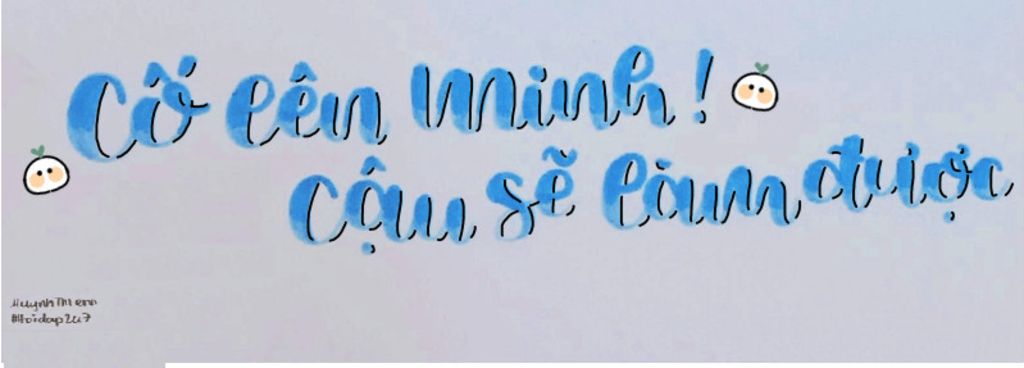 Cố lên Minh!
Cậu sẽ làm được
#Hoidap247